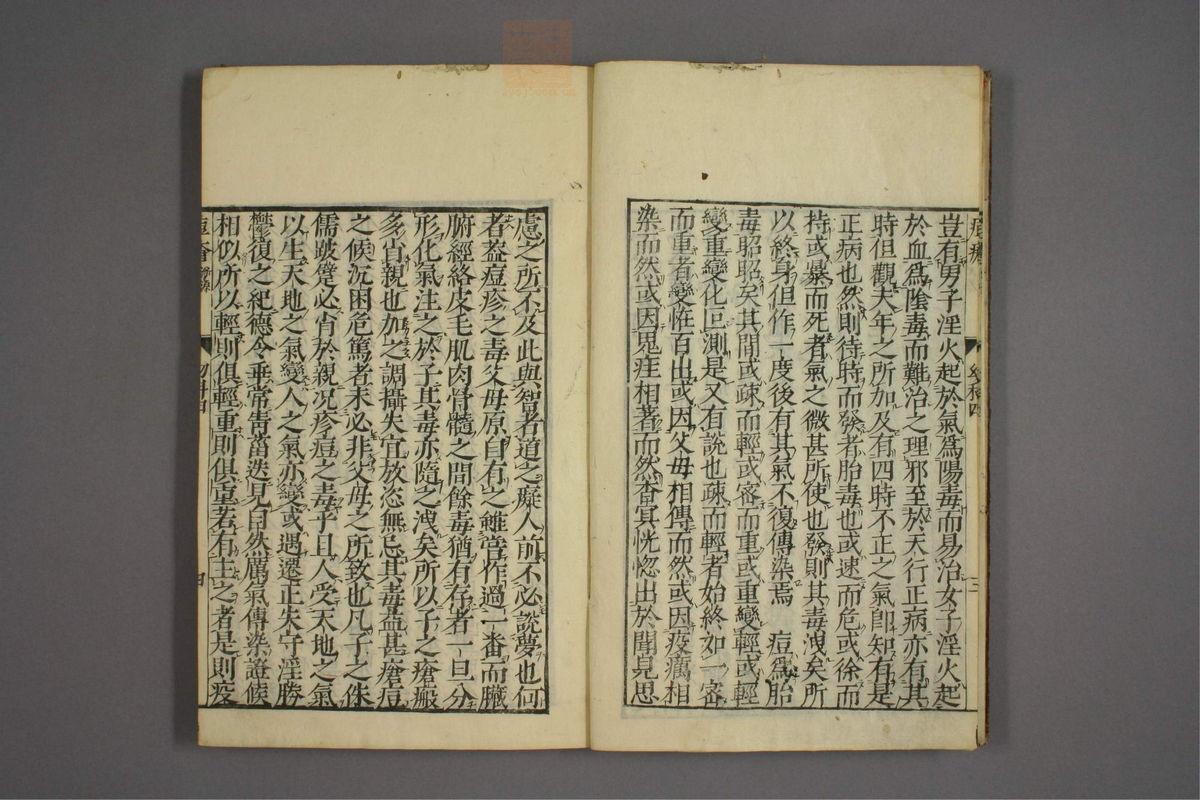 豈有男子淫火起於氣爲陽毒而易治女子淫火起
於血爲陰毒而難治之理邪至於天行正病亦有其
時但觀大年之所加及有四時不正之氣卽知有是
正病也然則待時而發者胎毒也或速而危或徐而
持或暴而死者氣之微甚所使也發則其毒洩矣所
以終身但作一度後有其氣不復傳染焉　痘爲胎
毒昭昭矣其間或疎而輕或密而重或重變輕或輕
變重變化叵測是又有說也疎而輕者始終如一密
而重者變恠百出或因父母相傳而然或因疫癘相
染而然或因鬼疰相著而然杳冥恍惚出於聞見思
慮之所不及此與智者道之癡人前不必說夢也何
者蓋痘疹之毒父母原自有之雖嘗作過一番而臟
腑經絡皮毛肌肉骨髓之間餘毒猶有存者一旦分
形化氣注之於子其毒亦隨之洩矣所以子之瘡瘢
多肖親也加之調攝失宜放恣無忌其毒益甚瘡痘
之候沉困危篤者未必非父母之所致也凡子之侏
儒跛躄必肖於親况疹痘之毒乎且人受天地之氣
以生天地之氣變人之氣亦變或遇遷正失守淫勝
欝復之紀德令乖常眚菑迭見自然厲氣傳染證候
相似所以輕則俱輕重則俱重若有主之者是則疫